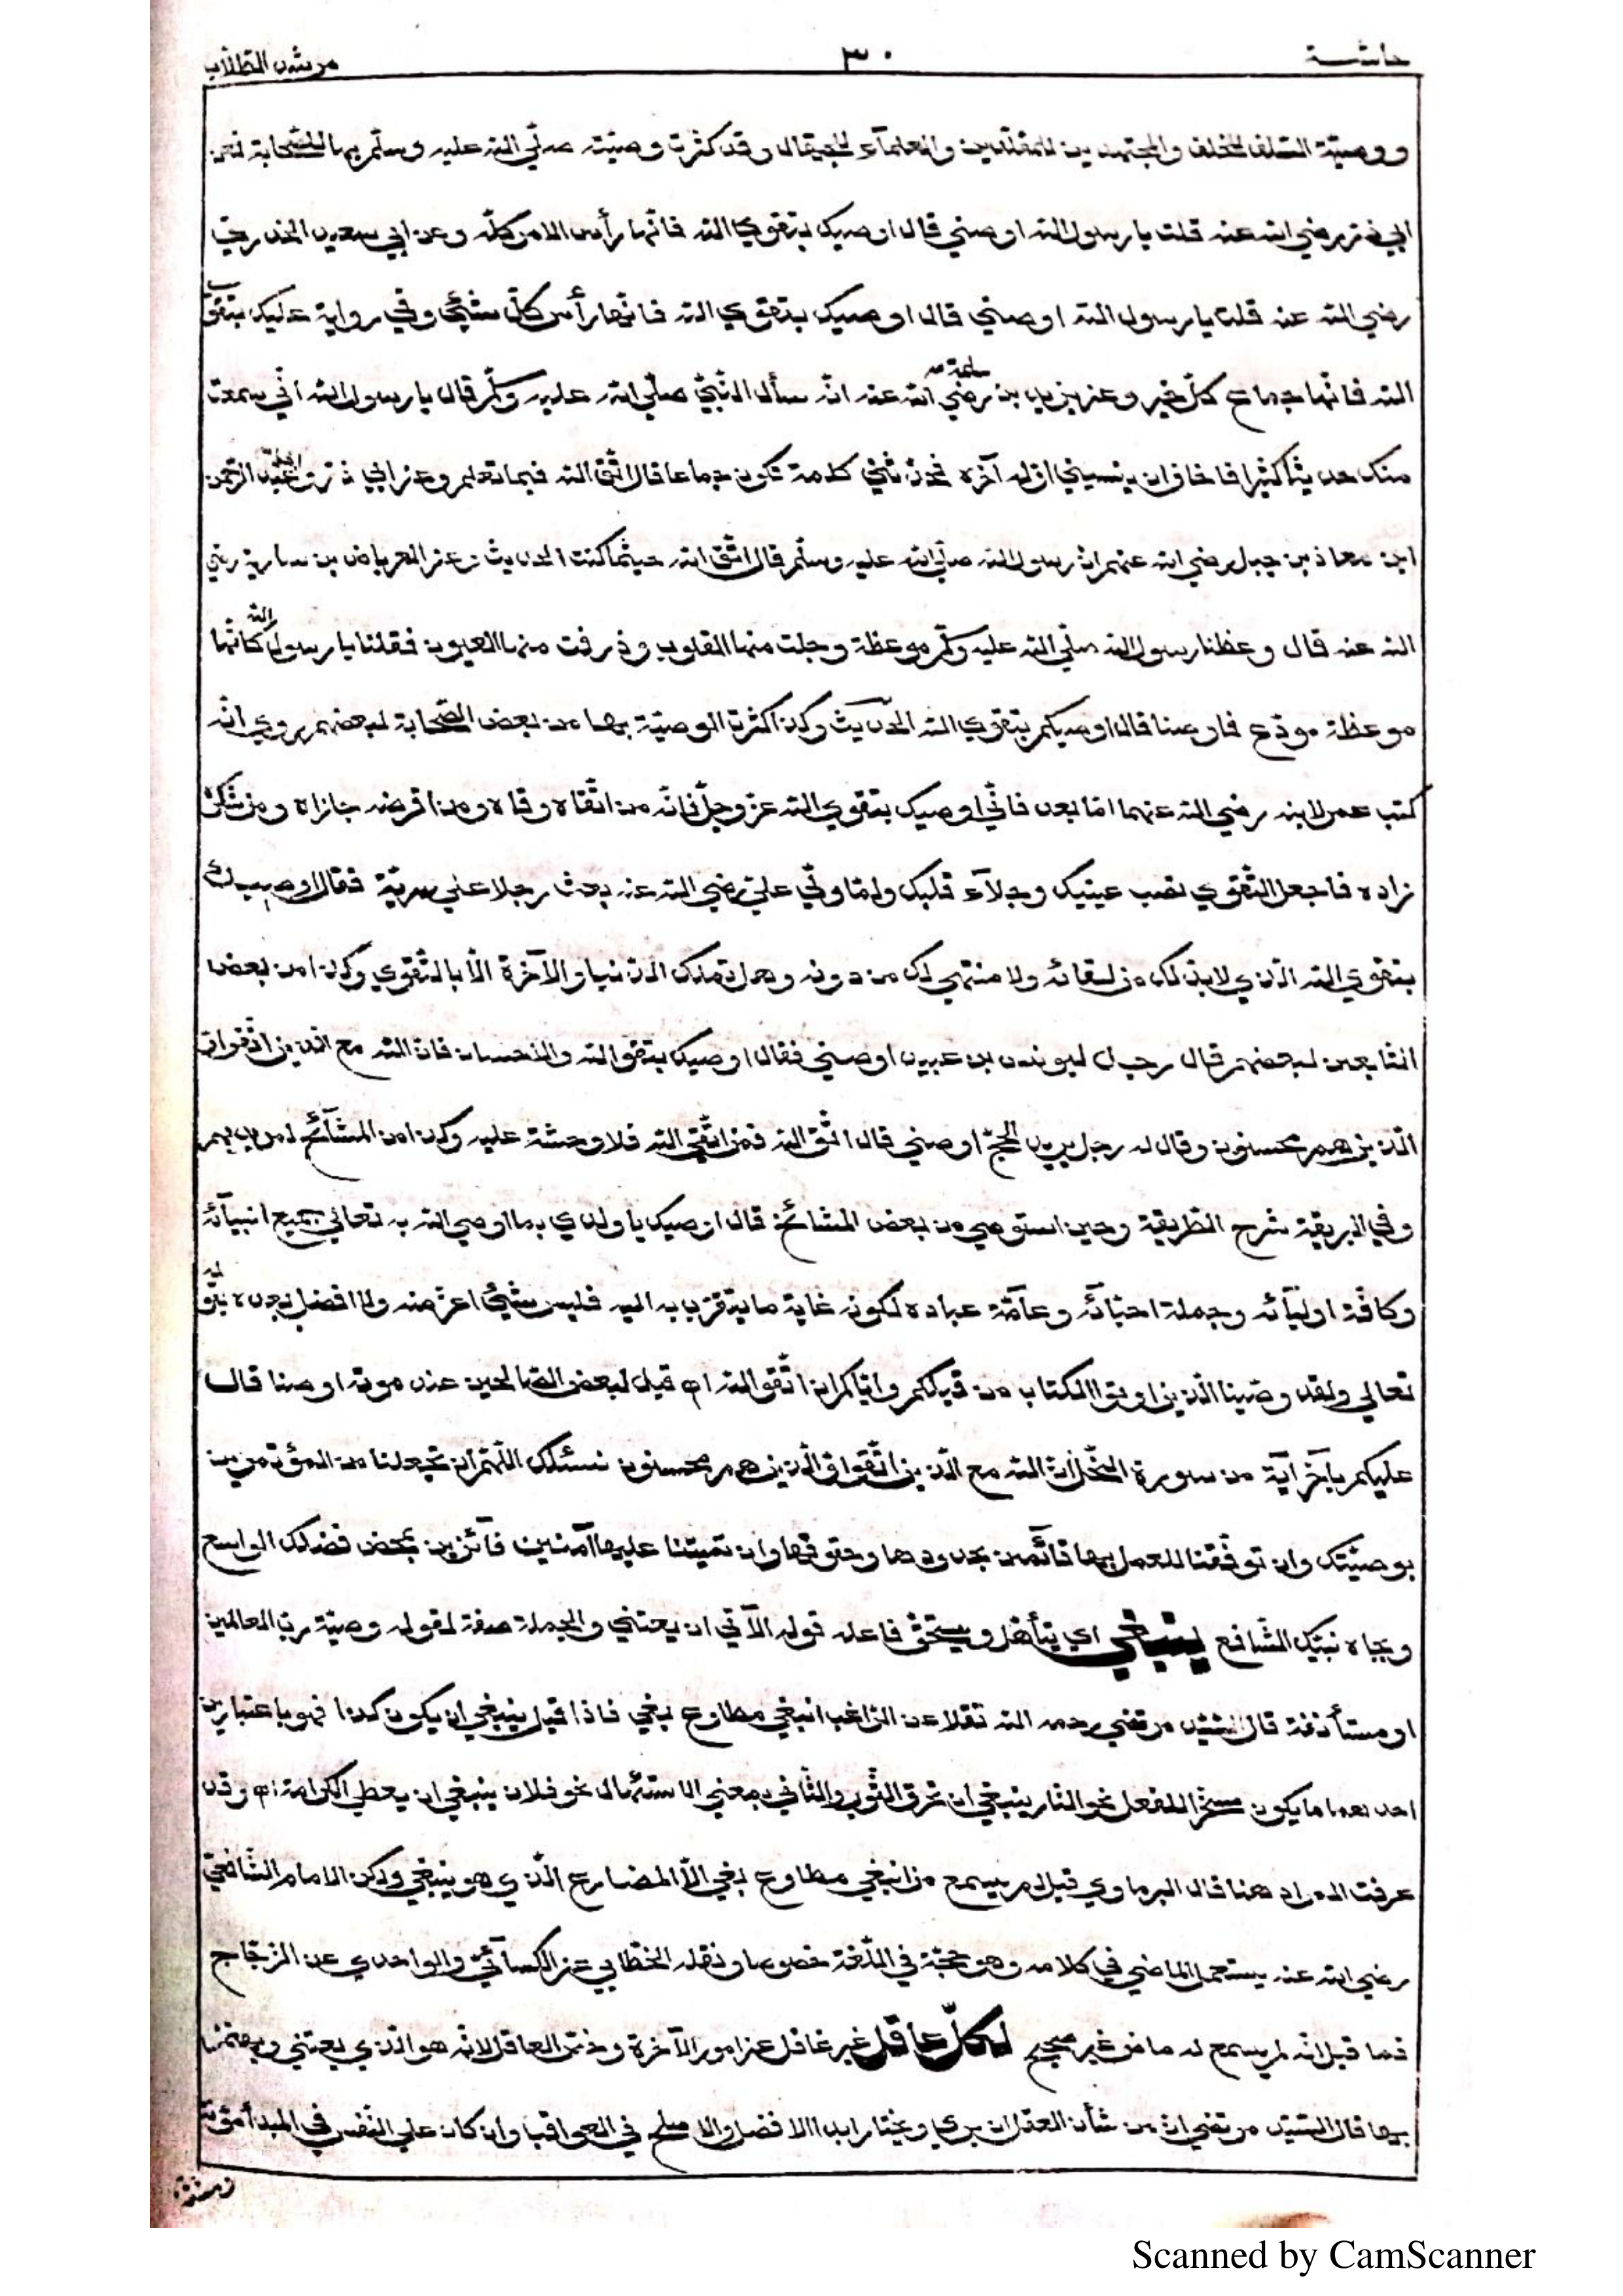 حاشية ٣٠ مرشد الطلاب
ووصيّة السّلف للخلف والمجتهدين للمقلّدين والعلمآء للجهّال وقد كثرت وصيّته صلّي الله عليه وسلّم بها للصّحابة فعن
ابي ذرّ رضي الله عنه قلت يا رسول الله اوصني قال اوصيك بتقوي الله فانّها رأس الامر كلّه وعن ابي سعيد الخدريّ
رضي الله عنه قلت يا رسول الله اوصني قال اوصيك بتقوي الله فانّها رأس كلّ شيئ وفي رواية عليك بتقوي
الله فانّها جماع كلّ خير وعن يزيد بن سلمة رضي الله عنه انّه سأل النّبيّ صلّي الله عليه وسلّم قال يا رسول الله انّي سمعت
منك حديثا كثيرا فاخاف ان ينسيني اوّله آخره فحدّثني كلمة تكون جماعا قال اتّق الله فيما تعلم وعن ابي ذرّ وابي عبد الرّحمن
ابن معاذ بن جبل رضي الله عنهم انّ رسول الله صلّي الله عليه وسلّم قال اتّق الله حيثما كنت الحديث وعن العرباض بن سارية رضي
الله عنه قال وعظنا رسول الله صلّي الله عليه وسلّم موعظة وجلت منها القلوب وذرفت منها العيون فقلنا يا رسول الله كانّها
موعظة مودّع فاوصنا قال اوصيكم بتقوي الله الحديث وكذا كثرة الوصيّة بها من بعض الصّحابة لبعضهم روي انّه
كتب عمر لابنه رضي الله عنهما امّا بعد فانّي اوصيك بتقوي الله عزّ وجلّ فانّه من اتّقاه وقاه ومن اقرضه جازاه ومن شكره
زاده فاجعل التّقوي نصب عينيك وجلآء قلبك ولمّا ولّي عليّ رضي الله عنه بعث رجلا علي سريّة فقال اوصيك
بتقوي الله الّذي لا بدّ لك من لقائه ولا منتهي لك من دونه وهل تملك الدّنيا والآخرة الّا بالتّقوي وكذا من بعض
التّابعين لبعضهم قال رجل ليونس بن عبيد اوصني فقال اوصيك بتقو الله والاحسان فانّ الله مع الّذين اتّقوا و
الّذين هم محسنون وقال له رجل يريد الحجّ اوصني قال اتّق الله فمن اتّقي الله فلا وحشة عليه وكذا من المشآئخ لمريديهم
وفي البريقة شرح الطّريقة وحين استوصي من بعض المشائخ قال اوصيك يا ولدي بما اوصي الله به تعالي جميع انبيآئه
وكافّة اوليآئه وجملة احبّآئه وعآمّة عباده لكونه غاية ما يتقرّب به اليه فليس شيئ اعزّ منه ولا افضل بعده بقوله
تعالي ولقد وصّينا الّذين اوتوا الكتاب من قبلكم وايّاكم ان اتّقوا الله اه قيل لبعض الصّالحين عند موته اوصنا قال
عليكم بآخر آية من سورة النّحل انّ الله مع الّذين اتّقوا والّذين هم محسنون نسئلك اللّهمّ ان تجعلنا من المؤتمرين
بوصيّتك وان توفّقنا للعمل بها قآئمين بحدودها وحقوقها وان تميتنا عليها آمنين فآئزين بمحض فضلك الواسع
وبجاه نبيّك الشّافع ينبغي اي يتأهّل ويستحقّ فاعله قوله الآتي ان يعتني والجملة صفة لقوله وصيّة ربّ العالمين
او مستأنفة قال السّيّد مرتضي رحمه الله نقلا عن الرّاغب انبغي مطاوع بغي فاذا قيل ينبغي ان يكون كذا فهو باعتبارين
احدهما ما يكون مسخّرا للفعل نحو النّار ينبغي ان تحرق الثّوب والثّاني بمعني الاستئهال نحو فلان ينبغي ان يعطي الكرامة اه وقد
عرفت المراد هنا قال البرماوي قيل لم يسمع من انبغي مطاوع بغي الّا المضارع الّذي هو ينبغي ولكن الامام الشّافعيّ
رضي الله عنه يستعمل الماضي في كلامه وهو حجّة في اللّغة خصوصا ونقله الخطّابي عن الكسآئيّ والواحدي عن الزّجّاج
فما قيل انّه لم يسمع له ماض غير صحيح لكلّ عاقل غير غافل عن امور الآخرة وخصّ العاقل لانّه هو الّذي يعتني ويهتمّ
بها قال السّيّد مرتضي انّ من شأن العقل ان يري ويختار ابدا الافضل والاصلح في العواقب وان كان علي النّفس في المبدأ مؤنة
Scanned by CamScanner